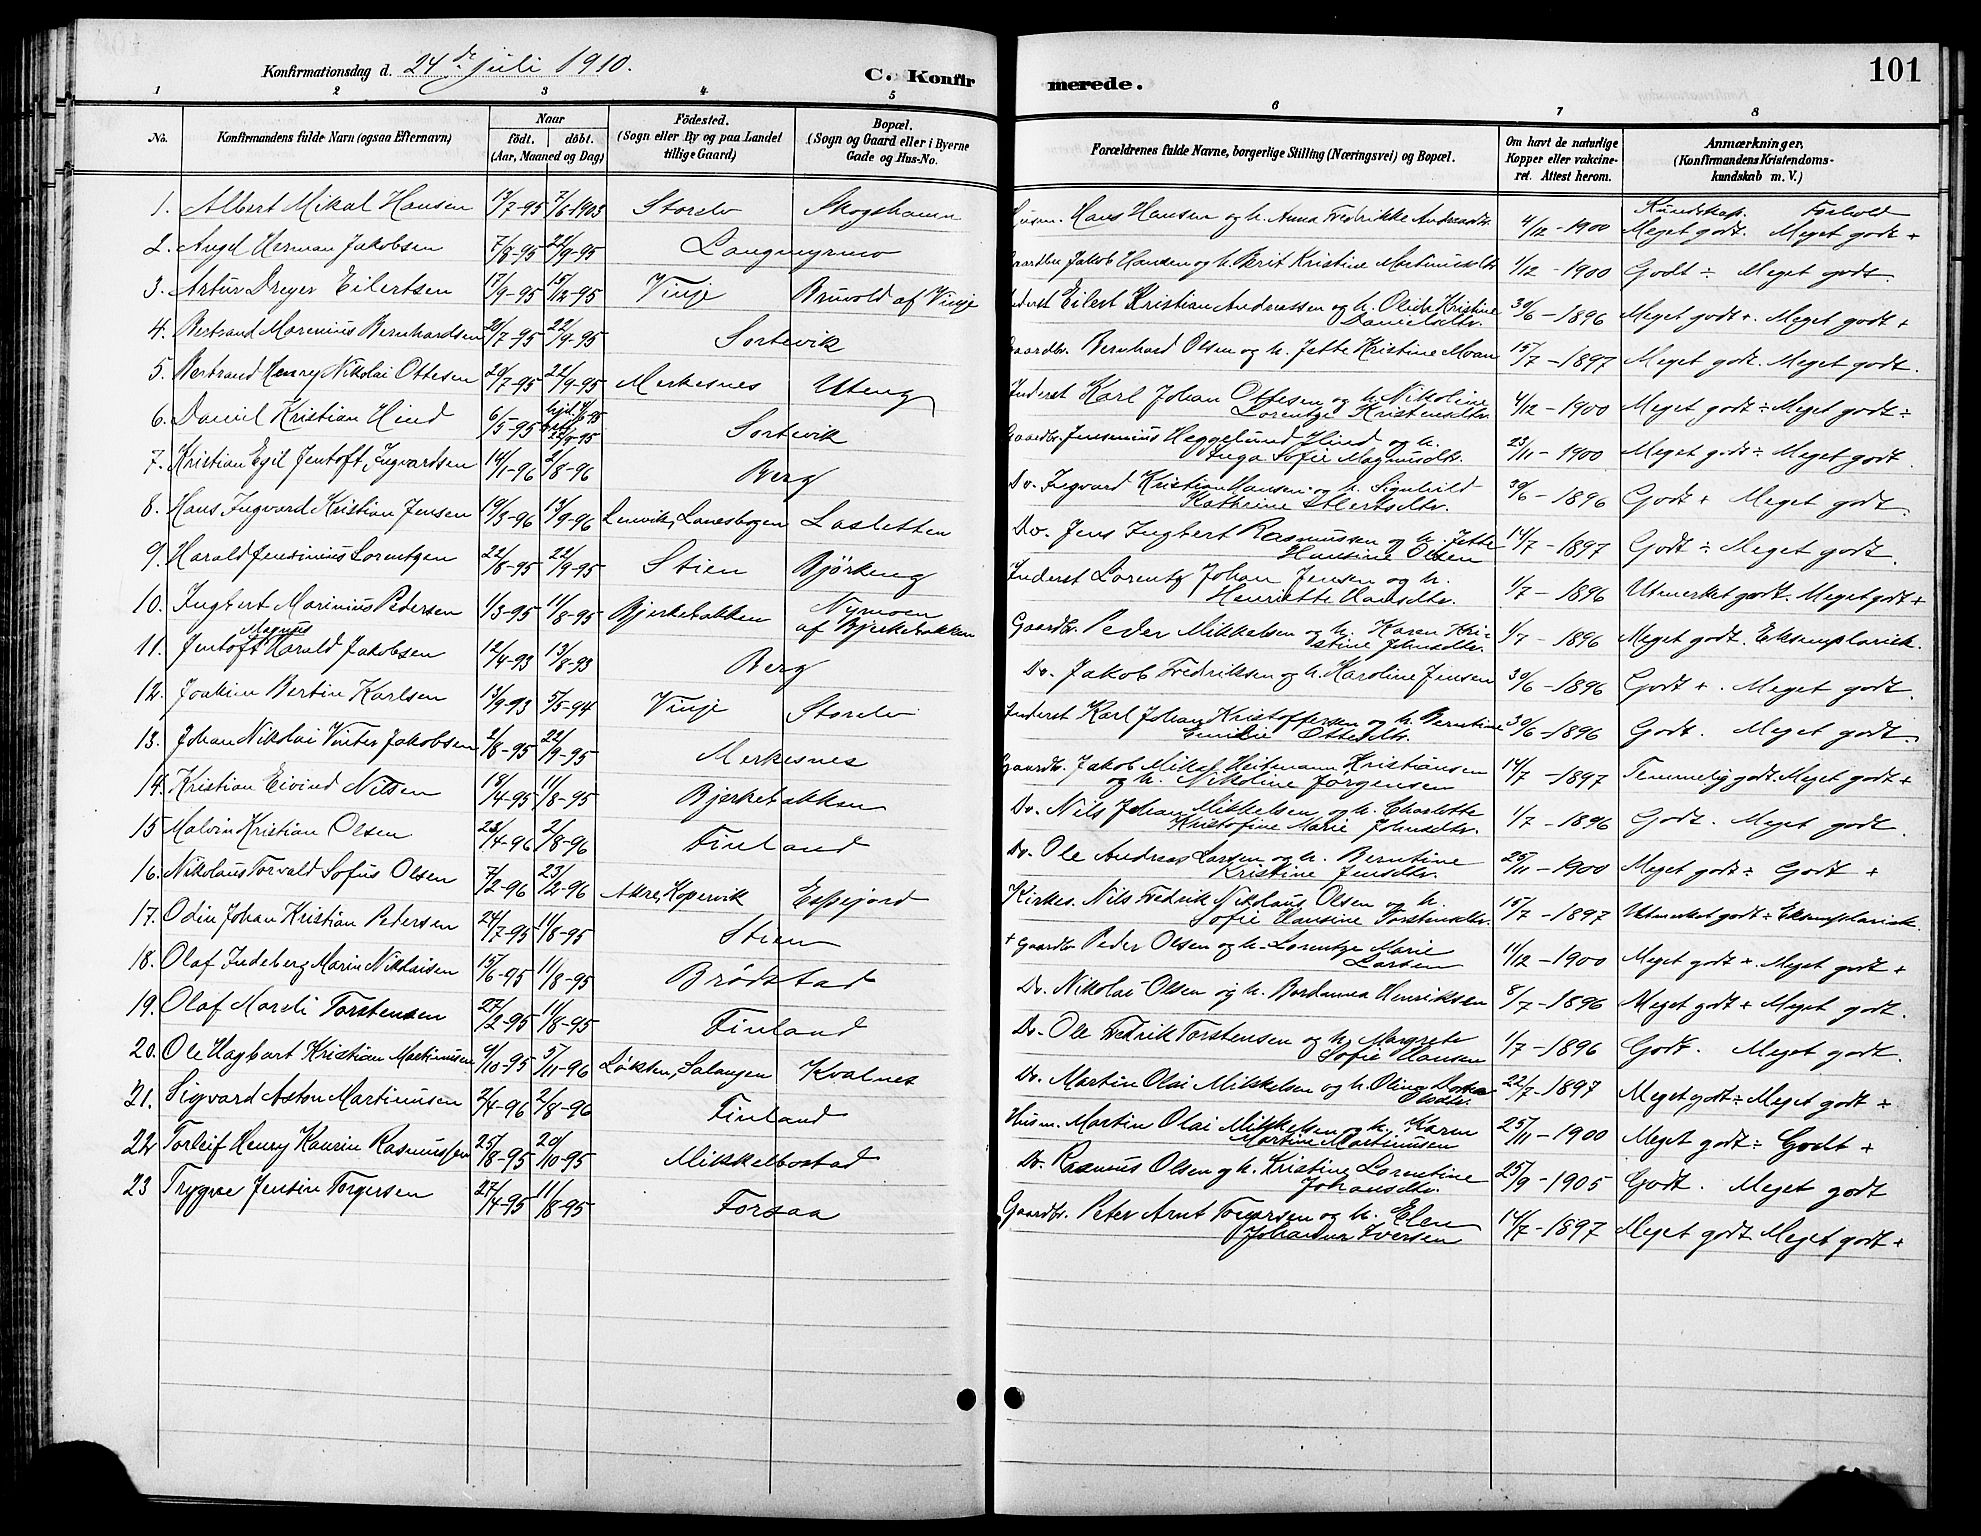 Konfirmationsdag d. 24de juli 1910.
C. Konfirmerede.
101
1 2 3 4 5 6 7 8
No. Konfirmandens fulde Navn (ogsaa Efternavn) Naar födt. döbt. (Aar, Maaned og Dag) Födested. (Sogn eller By og paa Landet tillige Gaard) Bopæl. (Sogn og Gaard eller i Byerne Gade og Hus-No. Forældrenes fulde Navne, borgerlige Stilling (Næringsvei) og Bopæl. Om havt de naturlige Kopper eller vakcineret. Attest herom. Anmærkninger. (Konfirmandens Kristendomskundskab m. V.)
Kundskap. Forhold
1. Albert Mikal Hansen 13/7-95 7/6-1903 Storelv Skogshamn Husm. Hans Hansen og h. Anna Fredrikke Andreasdtr. 4/12-1900 Meget godt. Meget godt +
2. Angel Herman Jakobsen 7/8-95 22/9-95 Langmyrmo Gaardbr. Jakob Hansen og h. Berit Kristine Martinusdtr. 1/12-1900 Godt ÷ Meget godt.
3. Artur Dreyer Eilertsen 17/9-95 15/12-95 Vinje Bruvold af Vinje Inderst Eilert Kristian Andreassen og h. Olide Kristine Danielsdtr. 30/6-1896 Meget godt +. Meget godt +
4. Bertrand Marenius Bernhardsen 21/7-95 22/9-95 Sortevik Gaardbr. Bernhard Olsen og h. Jette Kristine Moan 15/7-1897 Meget godt. Meget godt.
5. Bertrand Henry Nikolai Ottesen 20/7-95 22/9-95 Merkesnes Uteng Inderst Karl Johan Ottesen og h. Nikoline Lorentze Kristensdtr. 4/12-1900 Meget godt ÷ Meget godt ÷
6. Daniel Kristian Hind 6/5-95 Sortevik Gaardbr. Jensenius Heggelund Hind og h. Inga Sofie Magnusdtr. 23/11-1900 Meget godt ÷ Meget godt.
7. Kristian Egil Jentoft Ingvardsen 14/1-96 2/8-96 Berg Do. Ingvard Kristian Hansen og h. Signhild Kathrine Albertsdtr. 30/6-1896 Godt + Meget godt.
8. Hans Ingvard Kristian Jensen 19/3-96 13/9-96 Lenvik, Lanesbogen Lasletten Do. Jens Ingbert Rasmussen og h. Jette Hansine Olsen 14/7-1897 Godt ÷ Meget godt.
9. Harald Jensinius Lorentzen 22/8-95 22/9-95 Stien Bjørkeng Inderst Lorentz Johan Jensen og h. Henriette Hansdtr. 1/7-1896 Utmerket godt. Meget godt +
10. Ingbert Marinius Pedersen 1/3-95 11/8-95 Bjerkebakken Nymoen af Bjerkebakken Gaardbr. Peder Mikkelsen og h. Karen Kristine Johnsdtr. 1/7-1896 Meget godt. Eksemplarisk.
11. Jentoft Magnus Harald Jakobsen 12/4-93 13/8-93 Berg Do. Jakob Fredriksen og h. Karoline Jensen 30/6-1896 Godt +. Meget godt.
12. Joakim Bertin Karlsen 13/9-93 5/5-94 Vinje Storelv Inderst Karl Johan Kristoffersen og h. Berntine Emilie Ottesdtr. 30/6-1896 Godt. Meget godt.
13. Johan Nikolai Vinter Jakobsen 2/8-95 22/9-95 Merkesnes Gaardbr. Jakob Mikal Heitmann Kristiansen og h. Nikoline Jørgensen 14/7-1897 Temmelig godt. Meget godt +
14. Kristian Eivind Nilsen 18/4-95 11/8-95 Bjerkebakken Do. Nils Johan Mikkelsen og h. Charlotte Kristofine Marie Johnsdtr. 1/7-1896 Godt. Meget godt.
15 Malvin Kristian Olsen 23/4-96 2/8-96 Finland Do. Ole Andreas Larsen og h. Berntine Kristine Jensdtr. 25/11-1900 Meget godt ÷ Godt +
16. Nikolaus Torvald Sofus Olsen 7/2-96 23/2-96 Akre, Kopervik Espejord Kirkes. Nils Fredrik Nikolaus Olsen og h. Sofie Hansine Torstensdtr. 15/7-1897 Utmerket godt ÷ Eksemplarisk.
17. Odin Johan Kristian Petersen 24/7-95 11/8-95 Stien + Gaardbr. Peder Olsen og h. Lorentze Marie Larsen 11/12-1900 Meget godt + Meget godt +
18. Olaf Indeberg Marin Nikolaisen 15/6-95 11/8-95 Brødstad Do. Nikolai Olsen og h. Bordanna Henriksen 8/7-1896 Meget godt + Meget godt.
19. Olaf Mareli Torstensen 27/2-95 11/8-95 Finland Do. Ole Fredrik Torstensen og h. Margrete Sofie Hansen 1/7-1896 Godt. Meget godt.
20. Ole Hagbart Kristian Martinusen 9/10-95 5/11-96 Løksten, Salangen Kvalnes Do. Martin Olai Mikkelsen og h. Oline 22/7-1897 Meget godt ÷ Meget godt ÷
21. Sigvard Aston Martinusen 2/4-96 2/8-96 Finland Husm. Martin Olai Mikkelsen og h. Karen Martine Martinusen 25/11-1900 Meget godt ÷ Godt +
22 Torleif Henry Kaurin Rasmussen 25/8-95 20/10-95 Mikkelbostad Do. Rasmus Olsen og h. Kristine Lorentine Johansdtr. 25/9-1905 Godt. Meget godt
23 Trygve Jentin Torgersen 27/4-95 11/8-95 Forsaa Gaardbr. Peter Arnt Torgersen og h. Elen Johanna Iversen 14/7-1897 Meget godt Meget godt +